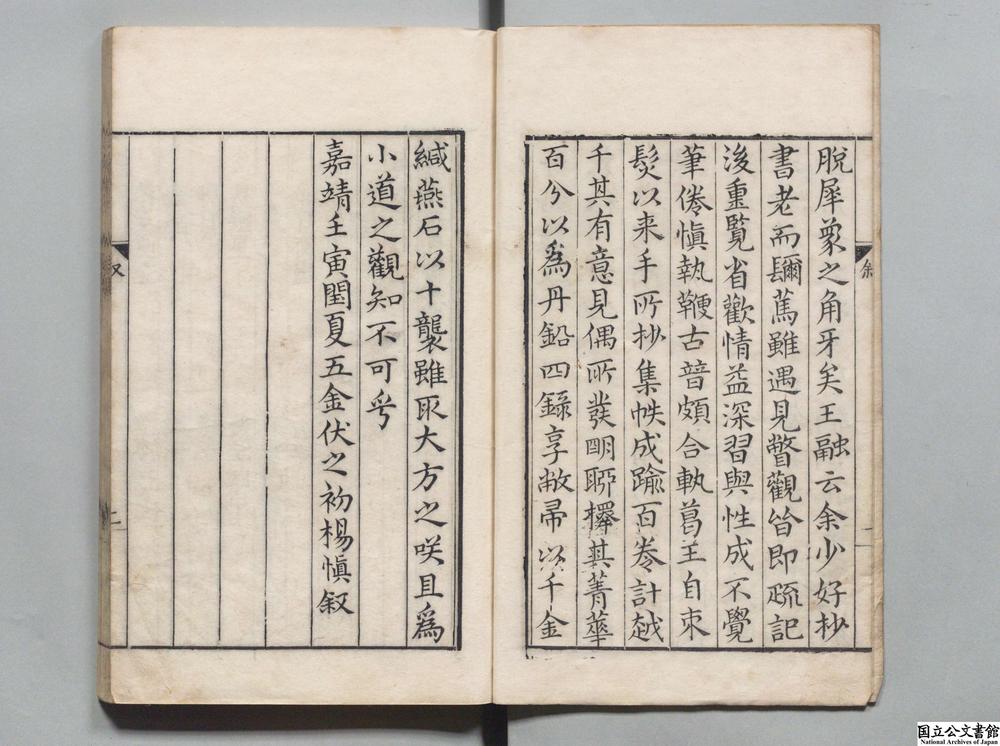 脫犀象之角牙矣王融云余少好抄
書老而彌篤雖遇見瞥觀皆即疏記
後重覽省歡情益深習與性成不覺
筆倦愼執鞭古昔頗合軌葛王自束
髮以来手所抄集帙成踰百卷計越
千其有意見偶所發明聊檡其菁華
百分以爲丹鉛四錄享敝帚以千金
緘燕石以十襲雖取大方之咲且爲
小道之觀知不可乎
嘉靖壬寅閏夏五金伏之初楊愼叙
二
国立公文書館
National Archives of Japan